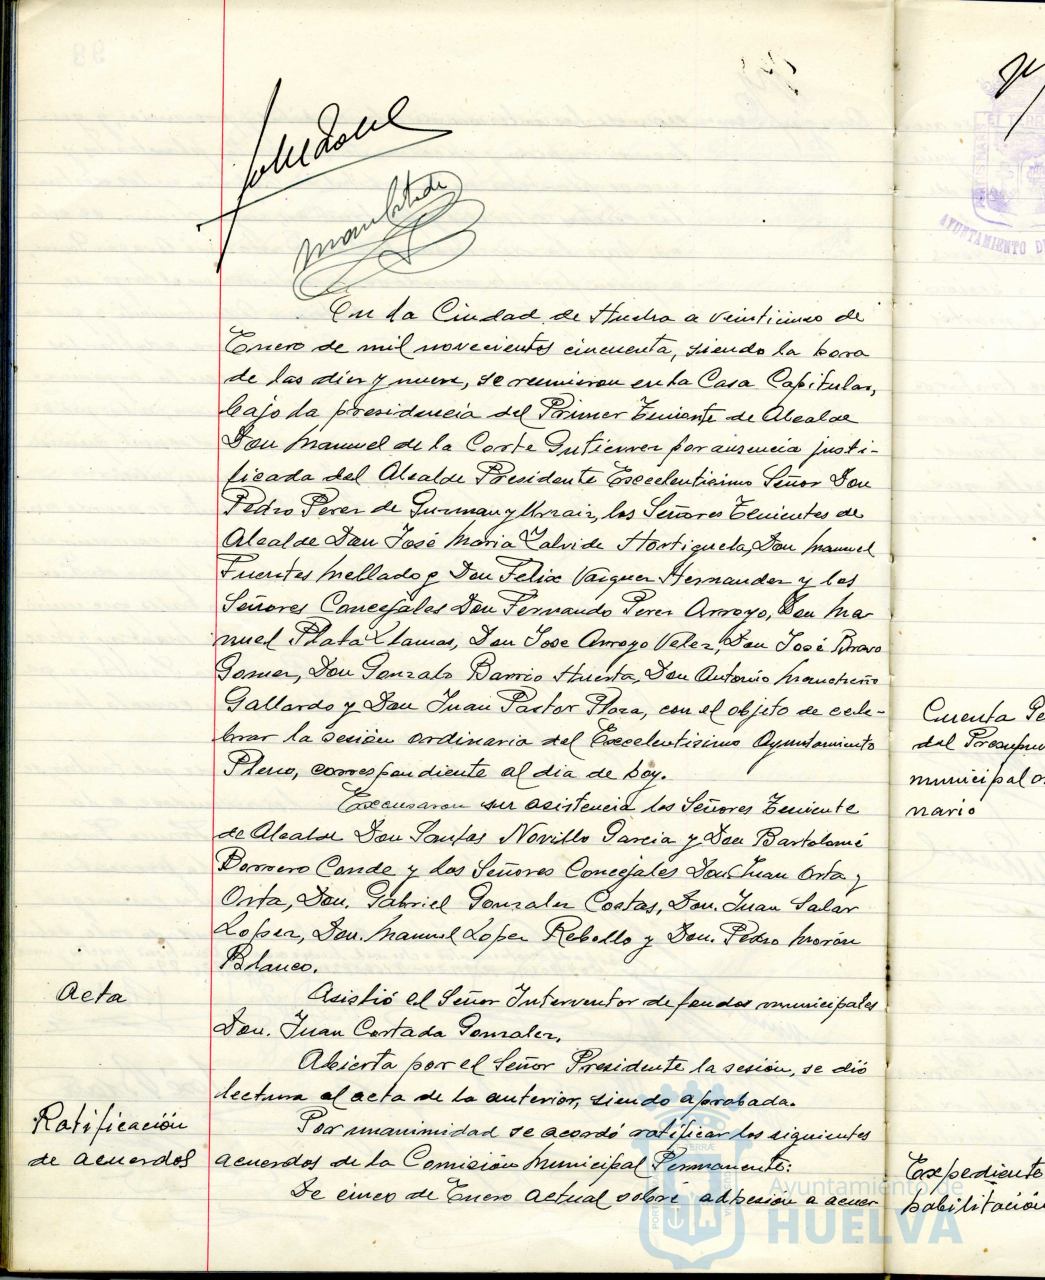 En la Ciudad de Huelva a veinticinco de
Enero de mil novecientos cincuenta, siendo la hora
de las diez y nueve, se reunieron en la Casa Capitular,
bajo la presidencia del Primer Teniente de Alcalde
Don Manuel de la Corte Gutierrez por ausencia justi-
ficada del Alcalde Presidente Excelentisimo Señor Don
Pedro Perez de Guzman y Urzaiz, los Señores Tenientes de
Alcalde Don José Maria Zalvide Hortigueta, Don Manuel
Fuentes Mellado, Don Felix Vazquez Hernandez y los
Señores Concejales Don Fernando Perez Arroyo, Don Ma-
nuel Plata Llamas, Don Jose Arroyo Velez, Don José Bravo
Gomez, Don Gonzalo Barrio Huerta, Don Antonio
Gallardo y Don Juan Pastor Plaza, con el objeto de cele-
brar la sesión ordinaria del Excelentisimo Ayuntamiento
Pleno, correspondiente al dia de hoy.
Excusaron su asistencia los Señores Teniente
de Alcalde Don Santos Novillo Garcia y Don Bartolomé
Borrero Conde y los Señores Concejales Don Juan Orta y
Orta, Don. Gabriel Gonzalez Costas, Don. Juan Salar
Lopez, Don. Manuel Lopez Rebollo y Don. Pedro Morón
Blanco.
Acta
Asistió el Señor Interventor de fondos municipales
Don. Juan Cortada Gonzalez.
Abierta por el Señor Presidente la sesión, se dió
lectura al acta de la anterior, siendo aprobada.
Ratificación
de acuerdos
Por unanimidad se acordó ratificar los siguientes
acuerdos de la Comisión Municipal Permanente:
De cinco de Enero actual sobre adhesión a acuer
AYUNTAMIENTO DE
Cuenta Ge
del Presupu
municipal or
nario
Expediente
habilitación
Ayuntamiento de
HUELVA